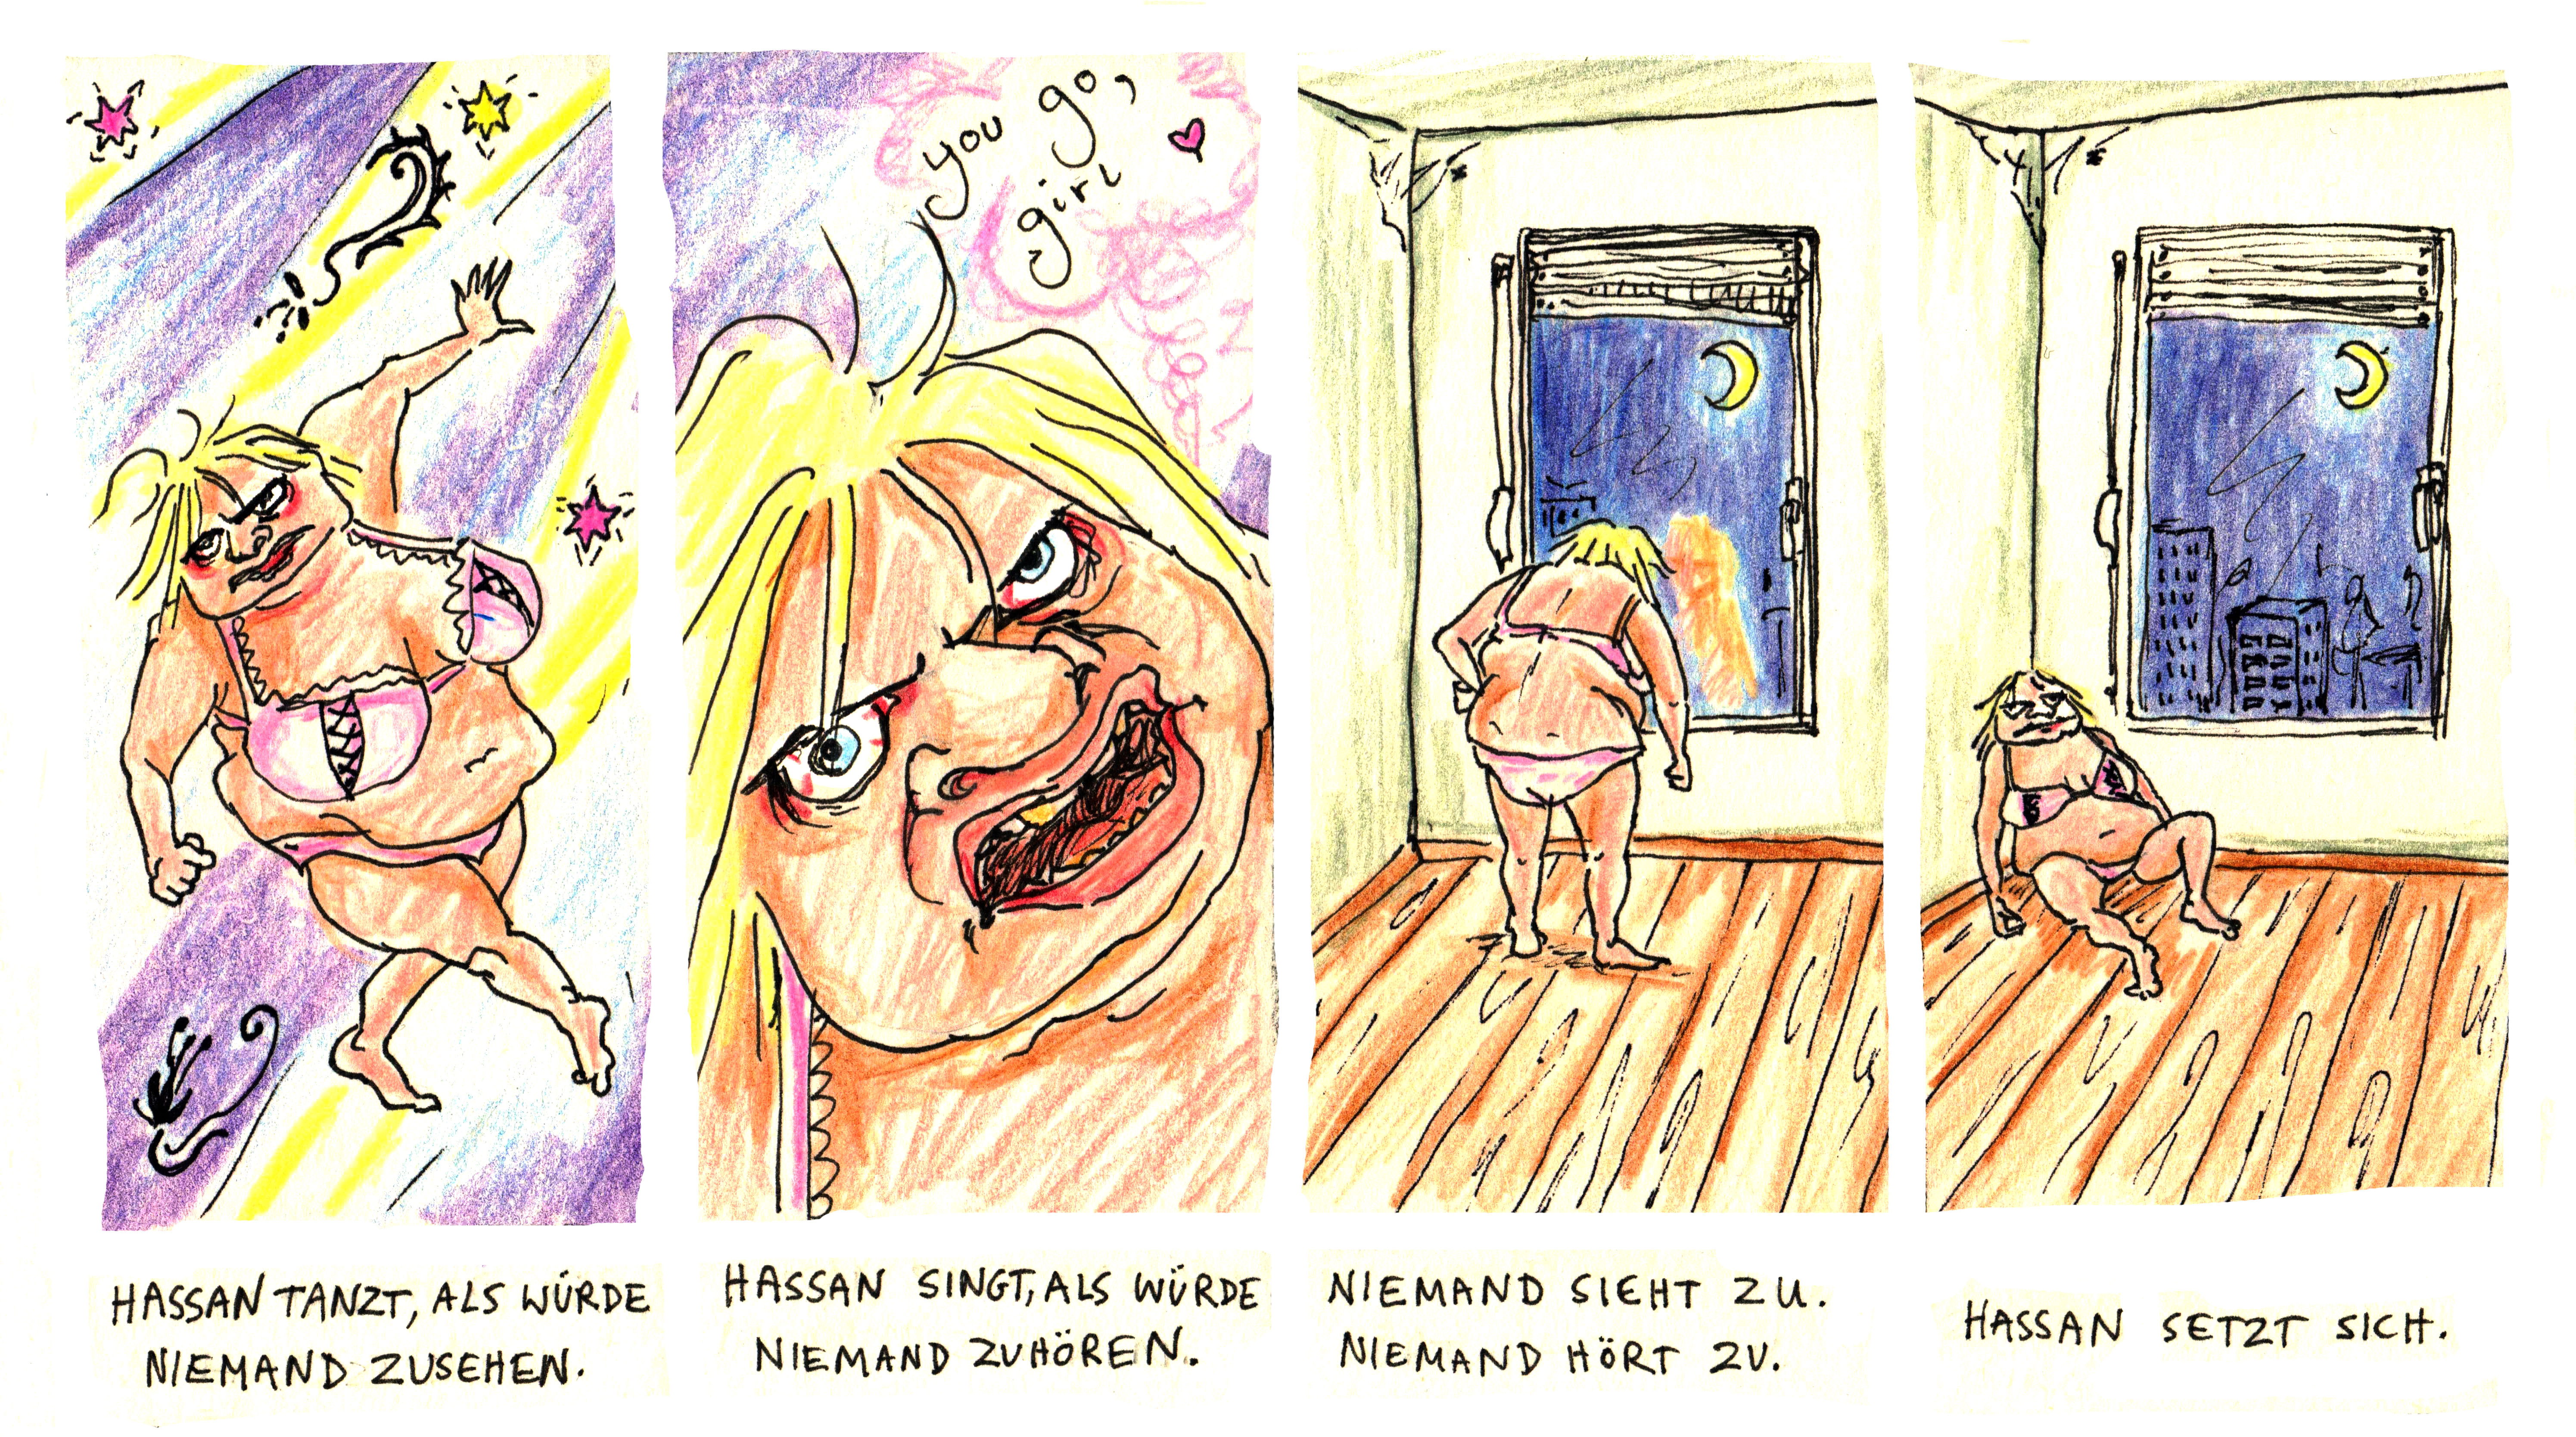 you go,
girl
HASSAN TANZT, ALS WÜRDE
NIEMAND ZUSEHEN.
HASSAN SINGT, ALS WÜRDE
NIEMAND ZUHÖREN.
NIEMAND SIEHT ZU.
NIEMAND HÖRT ZU.
HASSAN SETZT SICH.